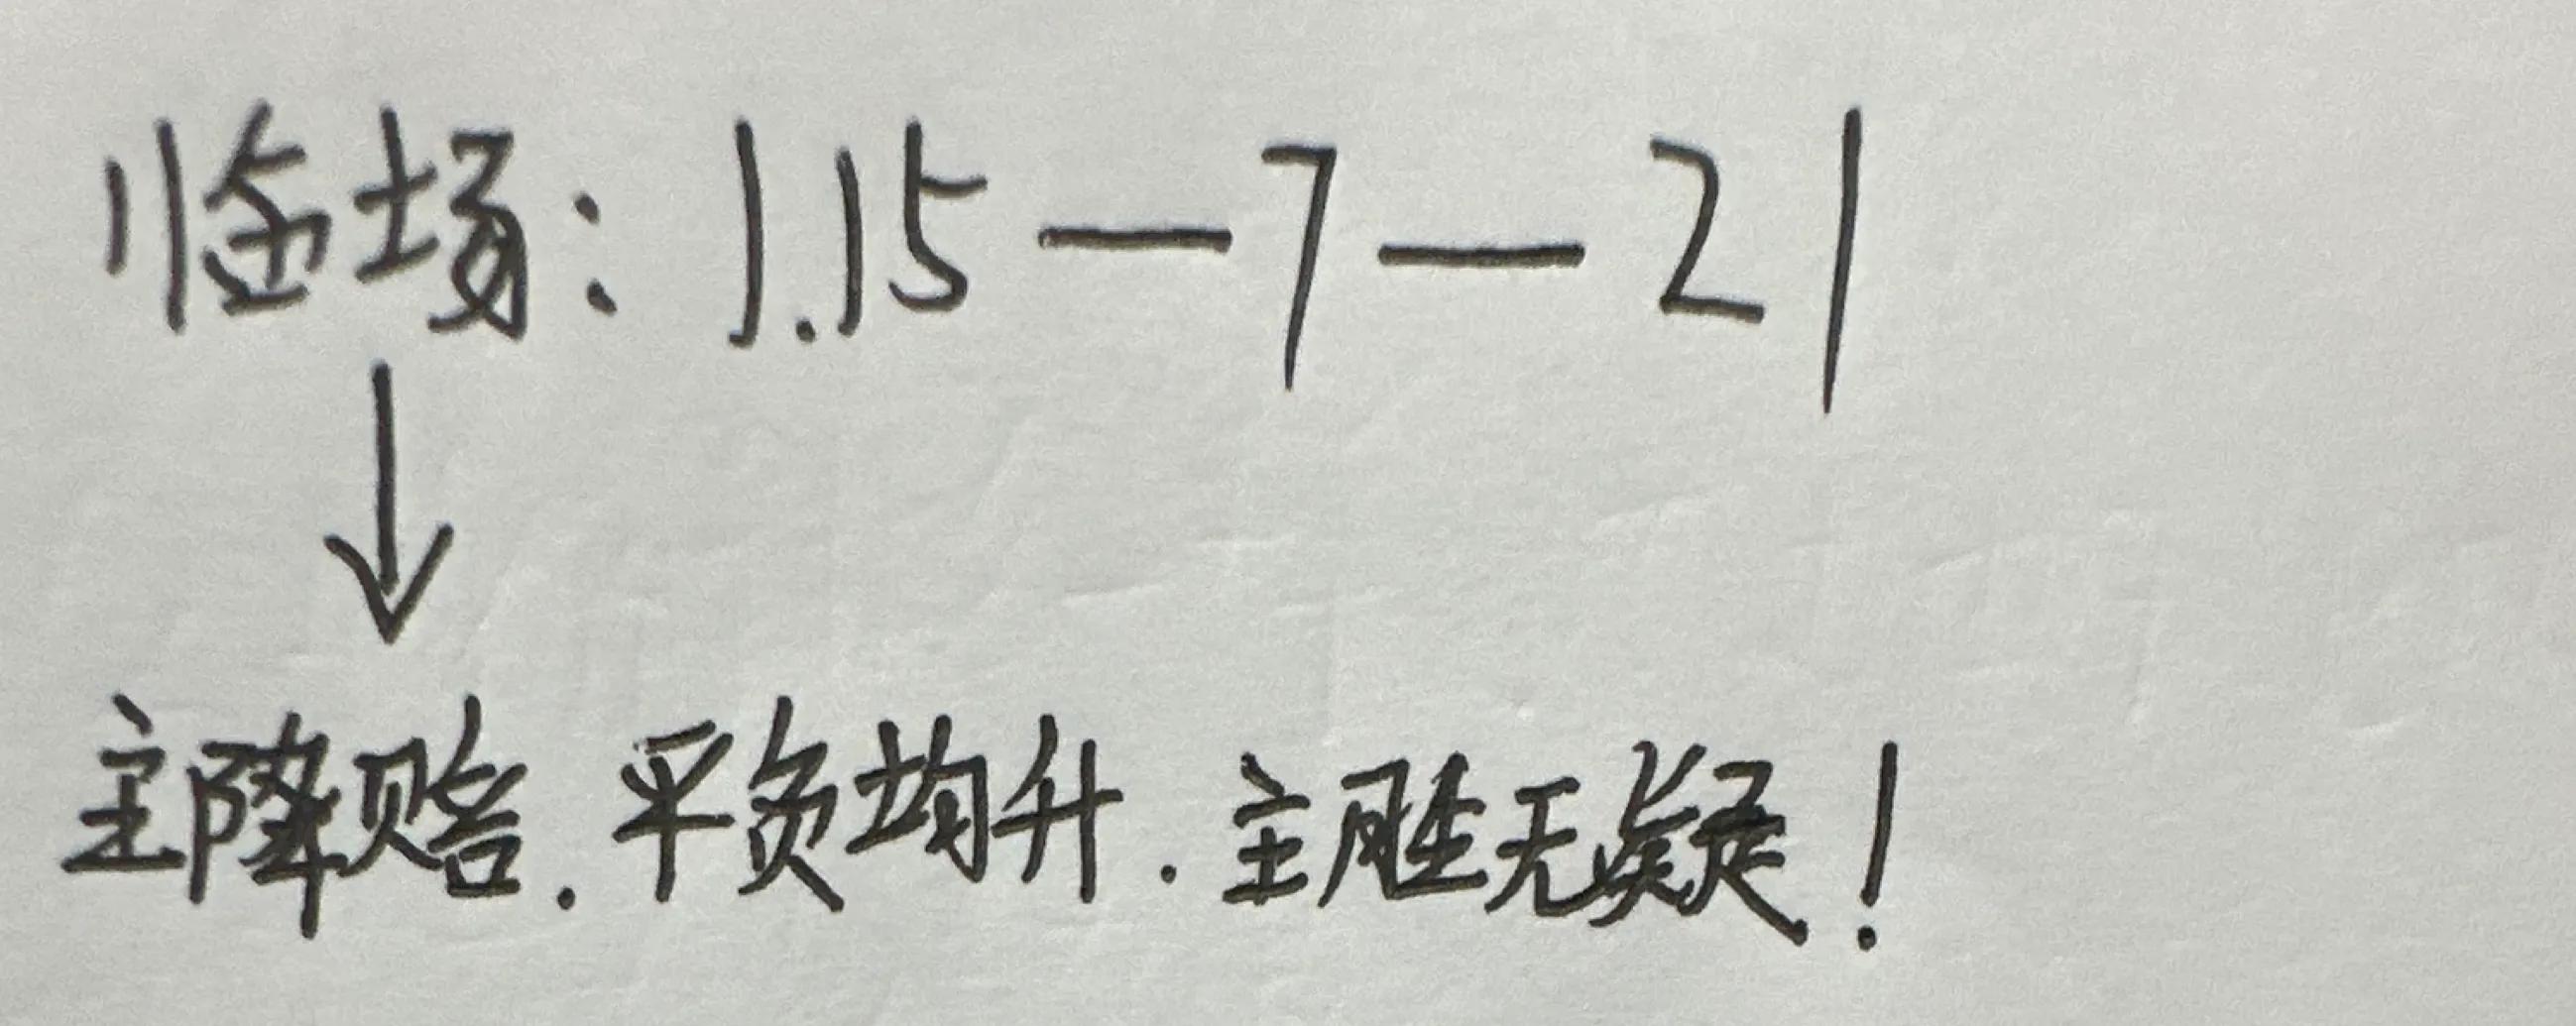 临场：1.15—7—21
主降赔．平负均升．主胜无疑！